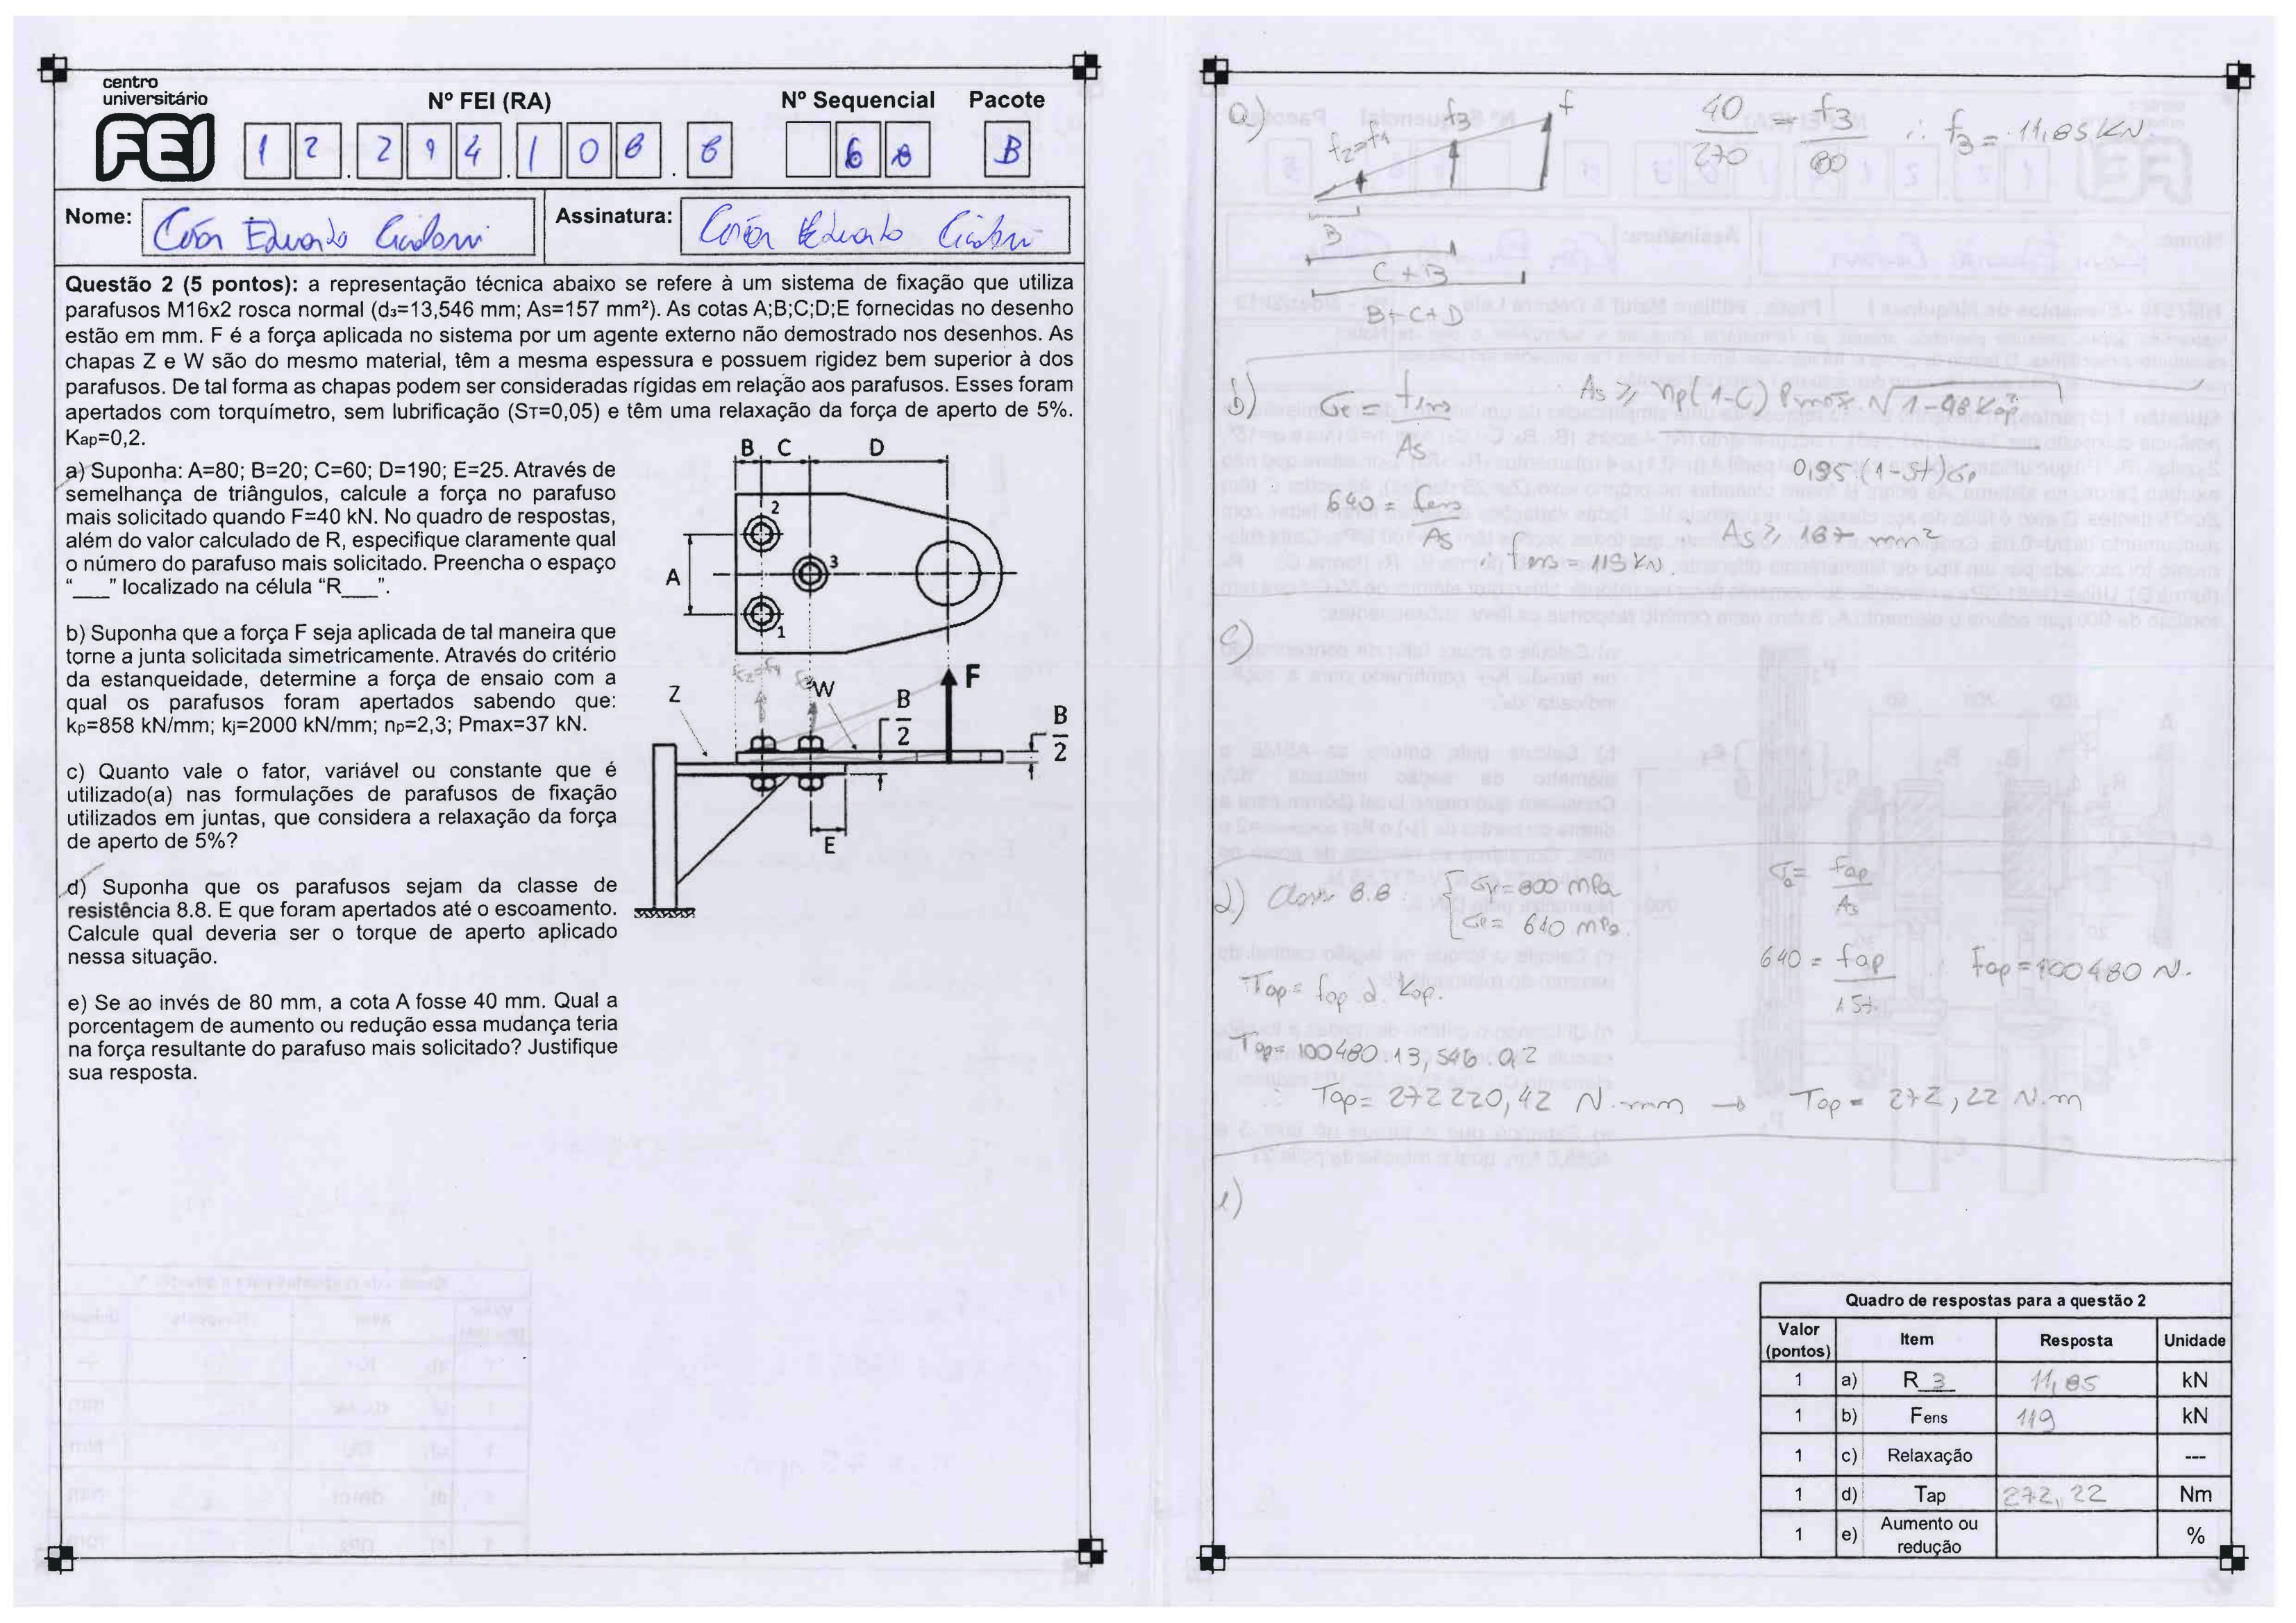 centro
universitário
FEI
Nº FEI (RA)
Nº Sequencial
Pacote
1 2 . 2 9 4 . 1 0 8 . 8
6 8
B
Nome:
Eduardo
Assinatura:
Eduardo
Questão 2 (5 pontos): a representação técnica abaixo se refere à um sistema de fixação que utiliza
parafusos M16x2 rosca normal (d₃=13,546 mm; As=157 mm²). As cotas A;B;C;D;E fornecidas no desenho
estão em mm. F é a força aplicada no sistema por um agente externo não demostrado nos desenhos. As
chapas Z e W são do mesmo material, têm a mesma espessura e possuem rigidez bem superior à dos
parafusos. De tal forma as chapas podem ser consideradas rígidas em relação aos parafusos. Esses foram
apertados com torquímetro, sem lubrificação (ST=0,05) e têm uma relaxação da força de aperto de 5%.
Kap=0,2.
a) Suponha: A=80; B=20; C=60; D=190; E=25. Através de
semelhança de triângulos, calcule a força no parafuso
mais solicitado quando F=40 kN. No quadro de respostas,
além do valor calculado de R, especifique claramente qual
o número do parafuso mais solicitado. Preencha o espaço
“___” localizado na célula “R___”.
b) Suponha que a força F seja aplicada de tal maneira que
torne a junta solicitada simetricamente. Através do critério
da estanqueidade, determine a força de ensaio com a
qual os parafusos foram apertados sabendo que:
kp=858 kN/mm; kj=2000 kN/mm; np=2,3; Pmax=37 kN.
c) Quanto vale o fator, variável ou constante que é
utilizado(a) nas formulações de parafusos de fixação
utilizados em juntas, que considera a relaxação da força
de aperto de 5%?
d) Suponha que os parafusos sejam da classe de
resistência 8.8. E que foram apertados até o escoamento.
Calcule qual deveria ser o torque de aperto aplicado
nessa situação.
e) Se ao invés de 80 mm, a cota A fosse 40 mm. Qual a
porcentagem de aumento ou redução essa mudança teria
na força resultante do parafuso mais solicitado? Justifique
sua resposta.
B C D
2
3
A
1
f2=f1
f3
W
F
Z
B/2
B/2
E
a)
f2=f1
f3
f
B
C+B
B+C+D
40/270 = f3/80 ∴ f3 = 11,85 KN
b)
σe = fens/As
As ≥ np(1-C) Pmax √1-48Kap²
0,95.(1-St)σp
640 = fens/As
∴ fens = 119 KN.
∴ As ≥ 187 mm²
c)
d) Classe 8.8: σr=800 mPa
σe= 640 mPa.
σa= fap/As
640 = fap/157 ∴ Fap=100480 N.
Tap= fap.d.Kap.
Tap= 100480.13,546.0,2
∴ Tap= 272220,42 N.mm → Tap= 272,22 N.m
e)
Quadro de respostas para a questão 2
Valor (pontos) Item Resposta Unidade
1 a) R_3_ 11,85 kN
1 b) Fens 119 kN
1 c) Relaxação ---
1 d) Tap 272,22 Nm
1 e) Aumento ou redução %